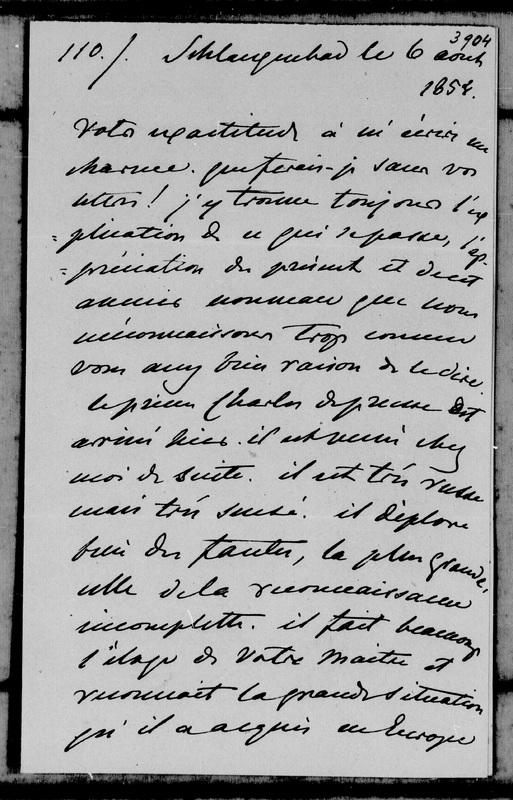 3904
110./. Schlangenbad le 6 aout
1854.
Votre exactitude à m'écrire me
charme. que ferais-je sans vos
lettres! j'y trouve toujours l'ex
=plication de ce qui se passe, l'ap
=préciation du présent et de cet
avenir nouveau que nous
méconnaissons trop comme
vous avez bien raison de le dire.
le prince Charles de prusse est
arrivé hier. il est venu chez
moi de suite. il est très russe
mais très sensé. il déplore
bien des fautes, la plus grande,
celle de la reconnaissance
incomplette. il fait beaucoup
l'éloge de Votre Maitre et
reconnait la grande situation
qu'il a acquis en Europe